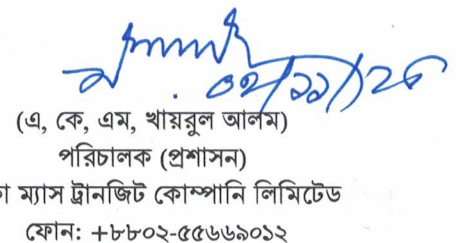 (এ, কে, এম, খায়রুল আলম)
পরিচালক (প্রশাসন)
ম্যাস ট্রানজিট কোম্পানি লিমিটেড
ফোন: +৮৮০২-৫৫৬৬৯০১২